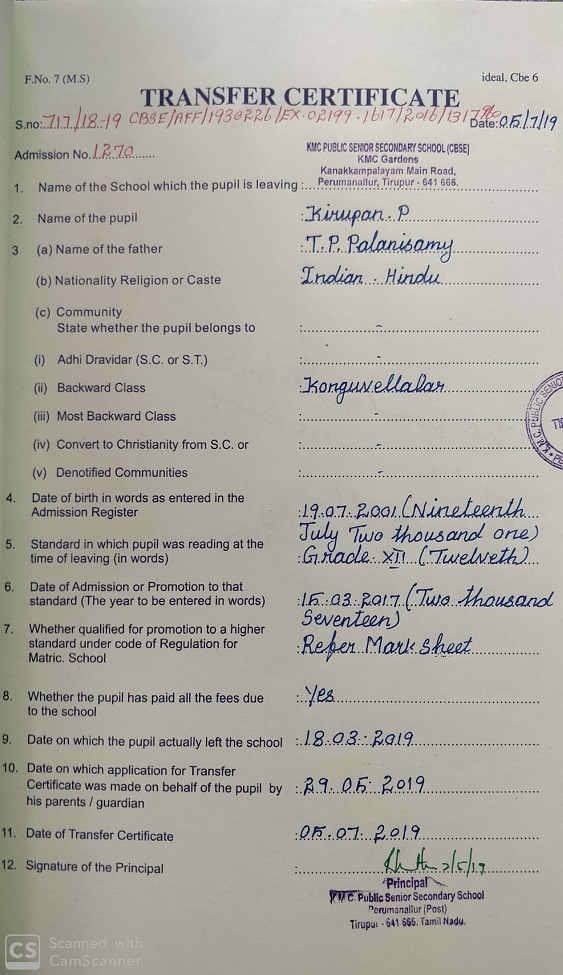 F.No. 7 (M.S)
ideal, Cbe 6
TRANSFER CERTIFICATE
S.no: 717/18-19 CBSE/AFF/1930226/EX-02199-1617/2016/1317
Date: 05/7/19
Admission No. 1270
KMC PUBLIC SENIOR SECONDARY SCHOOL (CBSE)
KMC Gardens
Kanakkampalayam Main Road,
Perumanallur, Tirupur - 641 666.
1. Name of the School which the pupil is leaving :
2. Name of the pupil : Kirupan. P
3 (a) Name of the father : T. P. Palanisamy
(b) Nationality Religion or Caste : Indian - Hindu
(c) Community
State whether the pupil belongs to : -
(i) Adhi Dravidar (S.C. or S.T.) : -
(ii) Backward Class : Konguvellalar
(iii) Most Backward Class : -
(iv) Convert to Christianity from S.C. or : -
(v) Denotified Communities : -
4. Date of birth in words as entered in the
Admission Register : 19.07.2001 (Nineteenth
July Two thousand one)
5. Standard in which pupil was reading at the
time of leaving (in words) : Grade XII (Twelveth)
6. Date of Admission or Promotion to that
standard (The year to be entered in words) : 15.03.2017 (Two thousand
Seventeen)
7. Whether qualified for promotion to a higher
standard under code of Regulation for : Refer Mark Sheet
Matric. School
8. Whether the pupil has paid all the fees due : Yes
to the school
9. Date on which the pupil actually left the school : 18.03.2019
10. Date on which application for Transfer
Certificate was made on behalf of the pupil by : 29.05.2019
his parents / guardian
11. Date of Transfer Certificate : 05.07.2019
12. Signature of the Principal :
Principal
KMC. Public Senior Secondary School
Perumanallur (Post)
Tirupur - 641 666. Tamil Nadu.
K.M.C. PUBLIC SENIOR
CS Scanned with
CamScanner